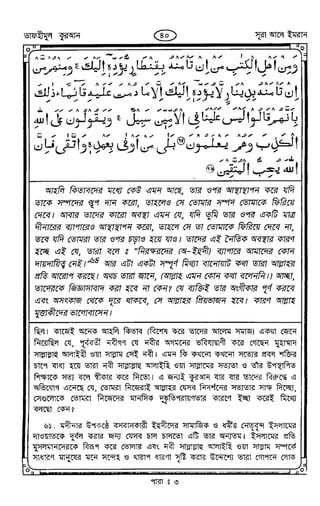 তাফহীমুল কুরআন
৪০
সূরা আলে ইমরান
وَمِنْ اَهْلِ الْكِتٰبِ مَنْ اِنْ تَاْمَنْهُ بِقِنْطَارٍ يُّؤَدِّهٖٓ اِلَيْكَ ۚ وَمِنْهُمْ مَّنْ
اِنْ تَاْمَنْهُ بِدِيْنَارٍ لَّا يُؤَدِّهٖٓ اِلَيْكَ اِلَّا مَا دُمْتَ عَلَيْهِ قَآئِمًا ۗ ذٰلِكَ
بِاَنَّهُمْ قَالُوْا لَيْسَ عَلَيْنَا فِى الْاُمِّيّٖنَ سَبِيْلٌ ۚ وَيَقُوْلُوْنَ عَلَى اللّٰهِ
الْكَذِبَ وَهُمْ يَعْلَمُوْنَ ۞ بَلٰى مَنْ اَوْفٰى بِعَهْدِهٖ وَاتَّقٰى فَاِنَّ
اللّٰهَ يُحِبُّ الْمُتَّقِيْنَ ۞
আহলি কিতাবদের মধ্যে কেউ এমন আছে, তার ওপর আস্থাস্থাপন করে যদি
তাকে সম্পদের স্তূপ দান করো, তাহলেও সে তোমার সম্পদ তোমাকে ফিরিয়ে
দেবে। আবার তাদের কারো অবস্থা এমন যে, যদি তুমি তার ওপর একটি মাত্র
দীনারের ব্যাপারেও আস্থাস্থাপন করো, তাহলে সে তা তোমাকে ফিরিয়ে দেবে না,
তবে যদি তোমরা তার ওপর চড়াও হয়ে যাও। তাদের এই নৈতিক অবস্থার কারণ
হচ্ছে এই যে, তারা বলে ঃ “নিরক্ষরদের (অ-ইহুদী) ব্যাপারে আমাদের কোন
দায়দায়িত্ব নেই।” আর এটা একটা সম্পূর্ণ মিথ্যা বানোয়াট কথা তারা আল্লাহর
প্রতি আরোপ করছে। অথচ তারা জানে, (আল্লাহ এমন কোন কথা বলেননি।) আচ্ছা,
তাদেরকে জিজ্ঞাসাবাদ করা হবে না কেন? যে ব্যক্তিই তার অংগীকার পূর্ণ করবে
এবং অসৎকাজ থেকে দূরে থাকবে, সে আল্লাহর প্রিয়ভাজন হবে। কারণ আল্লাহ
মুত্তাকীদের ভালোবাসেন।
ছিল। কাজেই অনেক আহলি কিতাব (বিশেষ করে তাদের আলেম সমাজ) একথা জেনে
নিয়েছিল যে, পূর্ববর্তী নবীগণ যে নবীর আগমনের ভবিষ্যদ্বাণী করে গেছেন মুহাম্মাদ
সাল্লাল্লাহু আলাইহি ওয়া সাল্লাম সেই নবী। এমন কি কখনো কখনো সত্যের প্রবল শক্তির
চাপে বাধ্য হয়ে তারা নবী সাল্লাল্লাহু আলাইহি ওয়া সাল্লামের সত্যতা ও তাঁর উপস্থাপিত
শিক্ষাকে সত্য বলে স্বীকার করে নিতো। এ জন্যই কুরআন বার বার তাদের বিরুদ্ধে এ
অভিযোগ এনেছে যে, তোমরা নিজেরাই আল্লাহর যেসব নিদর্শনের সত্যতার সাক্ষ দিচ্ছো,
সেগুলোকে তোমরা নিজেদের মানসিক দুষ্কৃতিপরায়ণতার কারণে ইচ্ছা করেই মিথ্যা
বলছো কেন?
৬১. মদীনার উপকণ্ঠে বসবাসকারী ইহুদীদের সামাজিক ও ধর্মীয় নেতৃবৃন্দ ইসলামের
দাওয়াতকে দুর্বল করার জন্য যেসব চাল চালতো এটি তার অন্যতম। ইসলামের প্রতি
মুসলমানদেরকে বিরূপ করে তোলার এবং নবী সাল্লাল্লাহু আলাইহি ওয়া সাল্লাম সম্পর্কে
সাধারণ মানুষের মনে সন্দেহ ও খারাপ ধারণা সৃষ্টি করার উদ্দেশ্যে তারা গোপনে লোক
পারা ঃ ৩